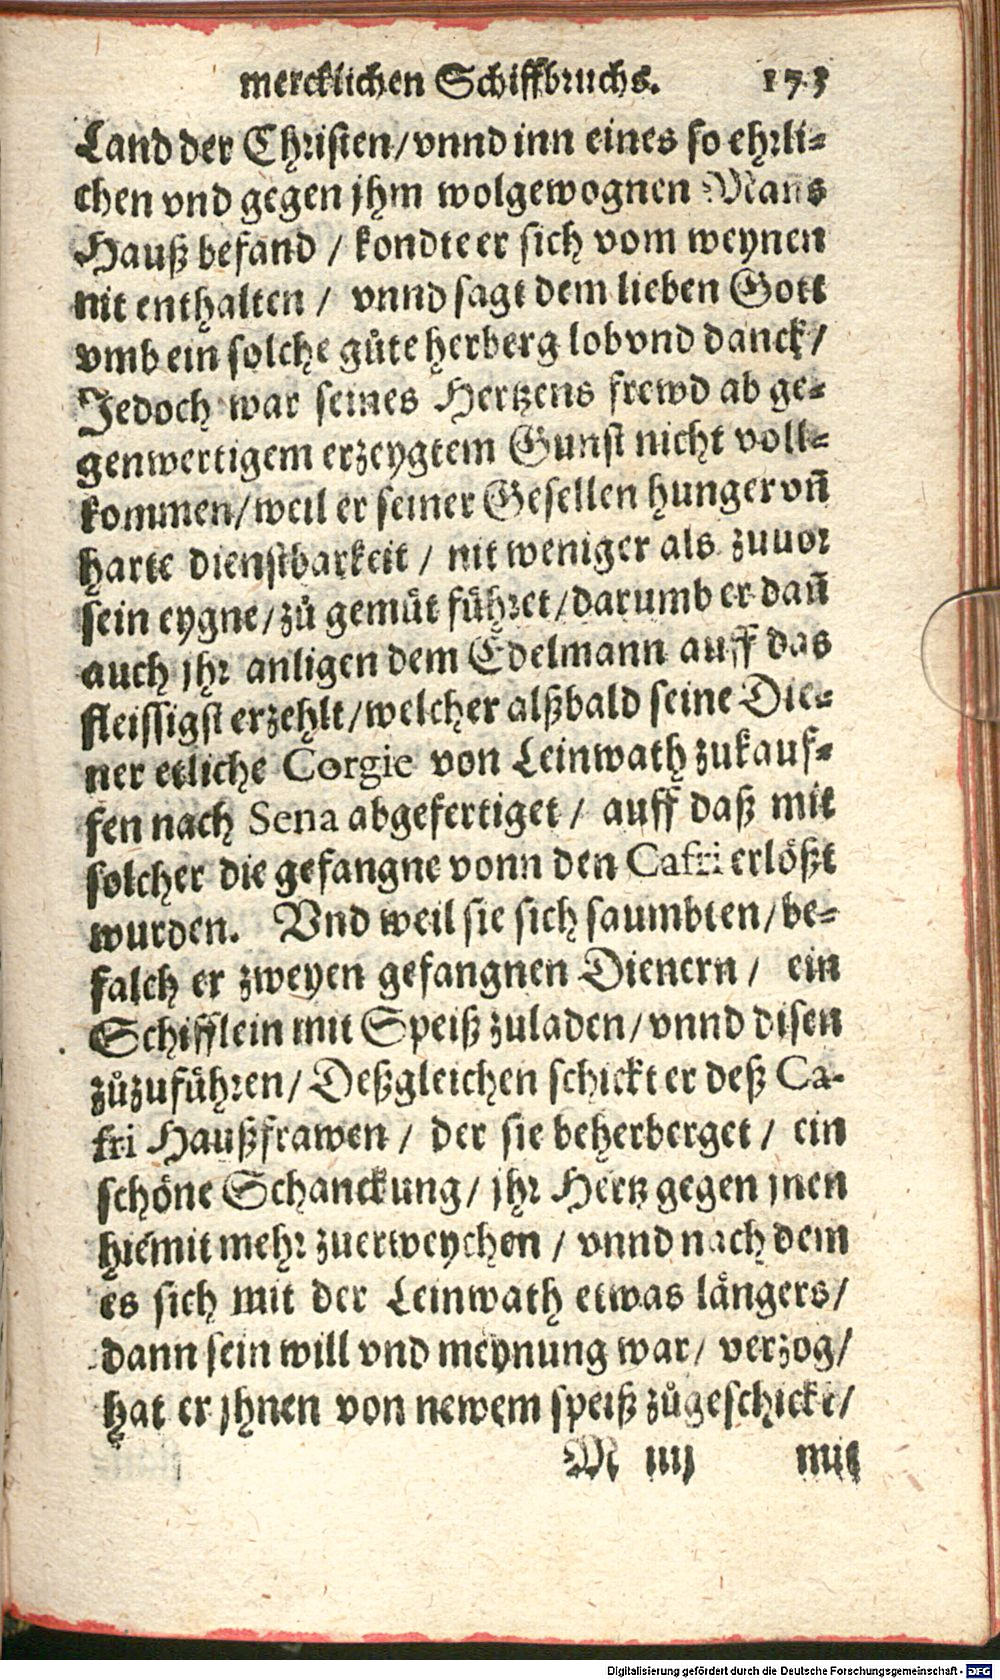 mercklichen Schiffbruchs. 173
Land der Christen/vnnd inn eines so ehrli-
chen vnd gegen jhm wolgewognen Mañs
Hauß befand / kondte er sich vom weynen
nit enthalten / vnnd sagt dem lieben Gott
vmb ein solche gůte herberg lob vnd danck/
Jedoch war seines Hertzens frewd ab ge-
genwertigem erzeygtem Gunst nicht voll-
kommen/weil er seiner Gesellen hunger vñ
harte dienstbarkeit / nit weniger als zuuor
sein eygne/zů gemüt führet/darumb er dañ
auch jhr anligen dem Edelmann auff das
fleissigst erzehlt/welcher alßbald seine Die-
ner etliche Corgie von Leinwath zukauf-
fen nach Sena abgefertiget / auff daß mit
solcher die gefangne vonn den Cafri erlößt
wurden. Vnd weil sie sich saumbten/be-
falch er zweyen gefangnen Dienern / ein
Schifflein mit Speiß zuladen/vnnd disen
zůzuführen/Deßgleichen schickt er deß Ca-
fri Haußfrawen / der sie beherberget / ein
schöne Schanckung/jhr Hertz gegen jnen
hiemit mehr zuerweychen / vnnd nach dem
es sich mit der Leinwath etwas längers/
dann sein will vnd meynung war/ verzog/
hat er jhnen von newem speiß zůgeschickt/
M iiij mit
Digitalisierung gefördert durch die Deutsche Forschungsgemeinschaft - DFG